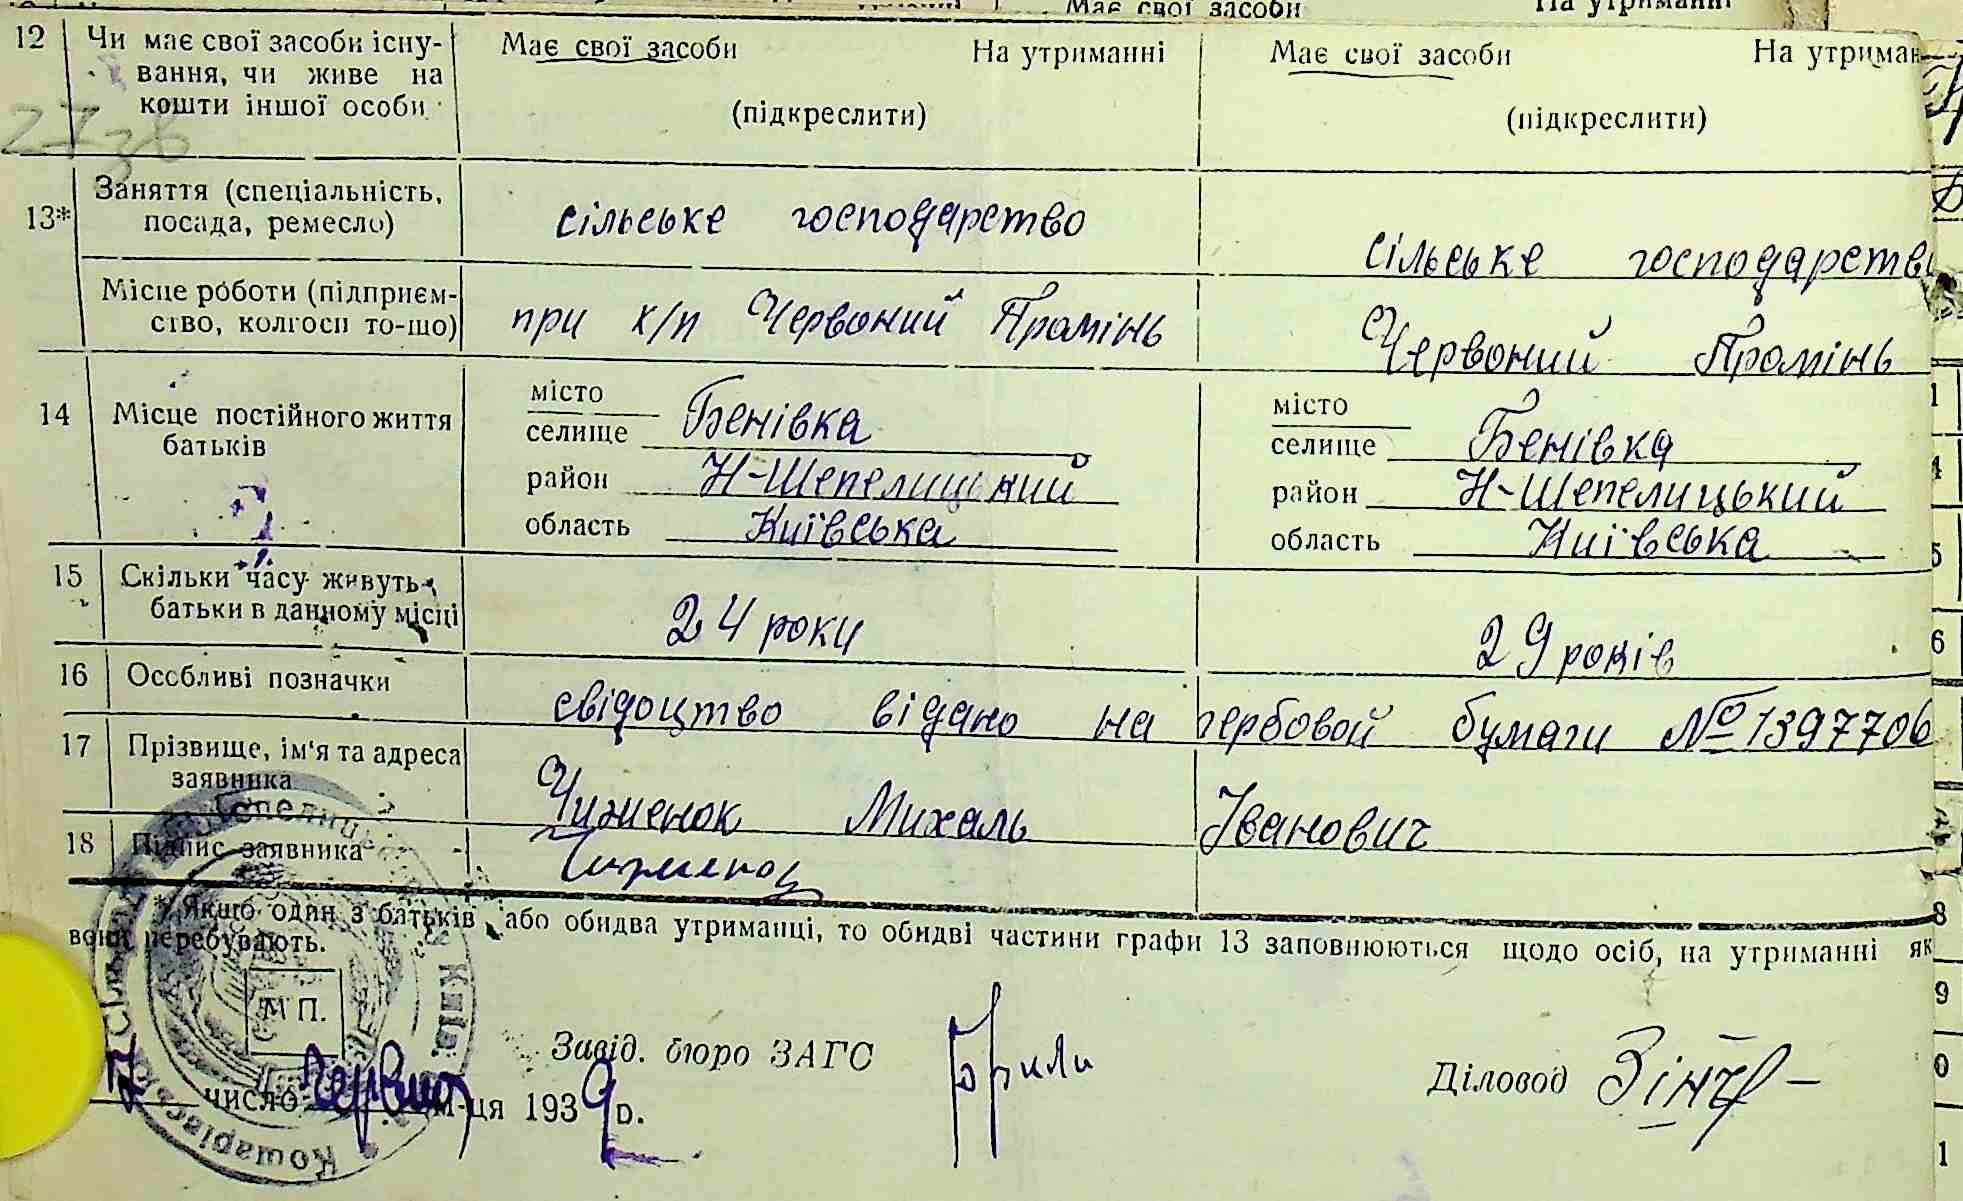 Має свої засоби На утриманні
12 Чи має свої засоби існу- Має свої засоби На утриманні Має свої засоби На утриман
вання, чи живе на
кошти іншої особи (підкреслити) (підкреслити)
27
38
13* Заняття (спеціальність, сільське господарство сільське господарство
посада, ремесло)
Місце роботи (підприєм- при х/п Червоний Промінь Червоний Промінь
ство, колгосп то-що)
14 Місце постійного життя місто місто
батьків селище Бенівка селище Бенівка
район Н-Шепелицький район Н-Шепелицький
область Київська область Київська
15 Скільки часу живуть 24 роки 29 років
батьки в данному місці
16 Особливі позначки свідоцтво відано на гербовой бумаги № 1397706
17 Прізвище, ім'я та адреса Чижменок Михаль Іванович
заявника
18 Підпис заявника
* Якщо один з батьків або обидва утриманці, то обидві частини графи 13 заповнюються щодо осіб, на утриманні як
вони перебувають.
М П.
Завід. бюро ЗАГС
Діловод
7 число червня м-ця 1939 р.